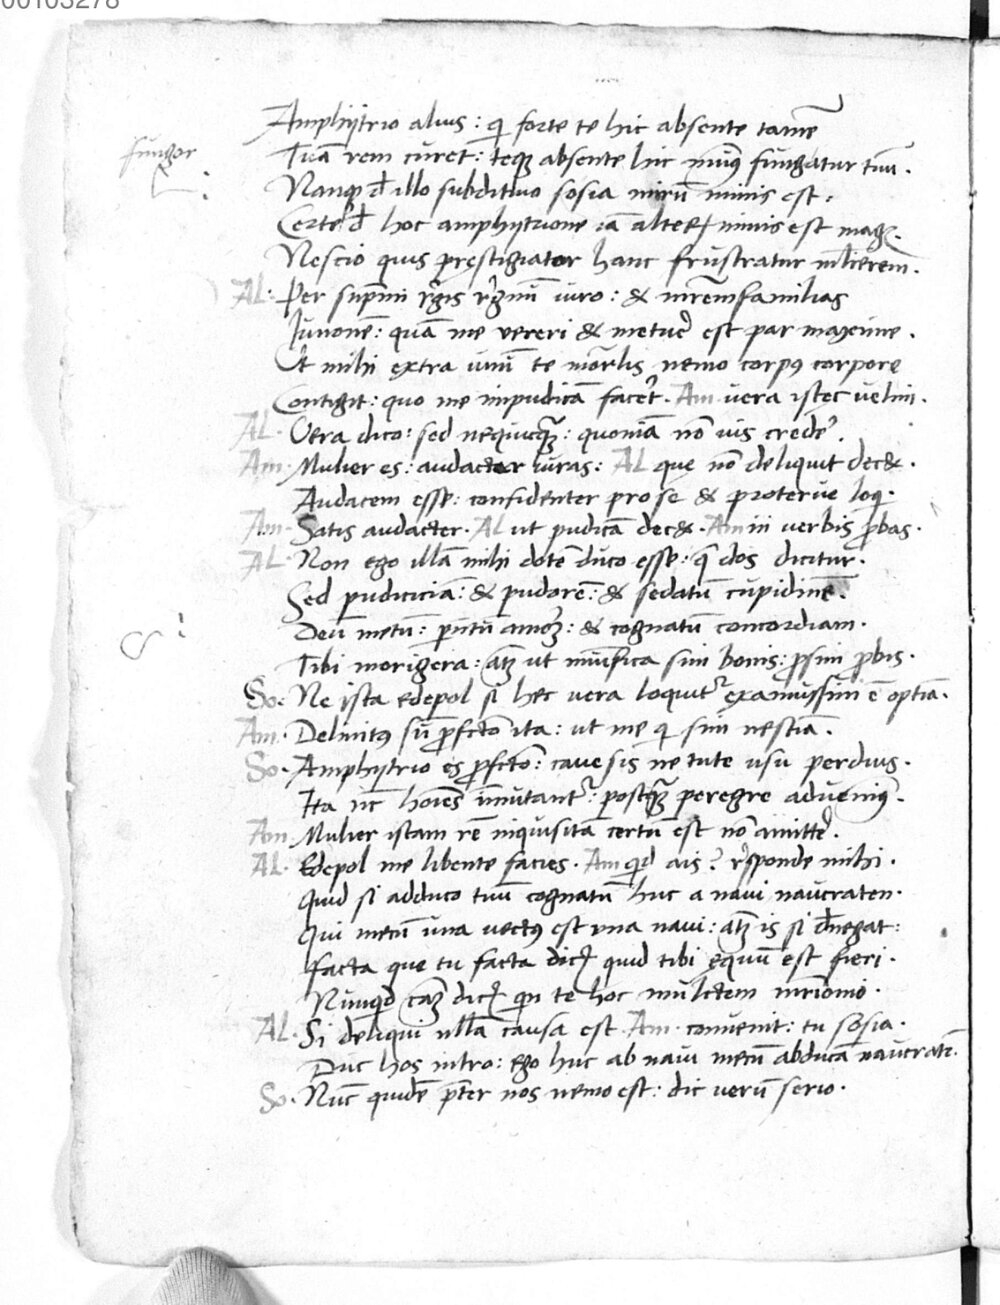 00103278
Amphytrio alius: qi forte te hic absente tamē
fungor
Tuā rem curet: teqꝫ absente hic munꝰ fungatur tuū.
Nanqꝫ đ illo subditiuo sosia mirū nimis est.
Certe đ hoc amphytrione iā alterꝝ nimis est magꝭ.
Nescio quis pręstigiator hanc frustratur mlierem.
AL: Per supmi rgis rgnū iuro: & mrēmfamilias
Junonē: quā me vereri & metuė est par maxime.
Ut mihi extra unū te mōrlis nemo corpꝰ corpore
Contigit: quo me impudicā facėt. Am. vera istęc velim.
AL. Vera dico: sed nequicqꝫ: quoniā nō uis credė.
Am. Mulier es: audacter iuras: AL que nō deliquit dec&.
Audacem esse: confidenter pro se & proterue loqi.
Am. Satis audacter. AL ut pudicā dec&. Am iń verbis ꝓbas.
AL. Non ego illā mihi dotē duco esse: q̄ dos dicitur.
Sed pudiciciā: & pudorē: & sedatū cupidinē.
Deū metū: pntū amoꝝ: & cognatū concordiam.
Tibi morigera: atqꝫ ut munifica sim bonis: ꝓsim ꝓbis.
So. Ne ista edepol si hęc vera loquitr examussim ē optiā.
Am. Delinitꝰ sū ꝓfcto ita: ut me qi sim nesciā.
So. Amphytrio es ꝓfcto: caue sis ne tute usu perduis.
Ita nc hoīes īmutantr: postqꝫ peregre aduenimꝰ.
Am. Mulier istam rē inquisitā certū est nō amittė.
AL. Edepol me libente facies. Am qid ais? rsponde mihi.
Quid si adduco tuū cognatū huc a naui naucraten.
Qui mecū una vectꝰ est una naui: atqꝫ is si đnegat:
Facta que tu facta dicꝭ quid tibi ęquū est fieri.
Nunqid cāꝫ dicꝭ qin te hoc mulctem mrīomō.
AL. Si deliqui nulla causa est. Am. conuenit: tu sosia.
Duc hos intro: ego huc ab naui mecū abducā naucratē.
So. Nūc quidē pter nos nemo est: dic verū serio.